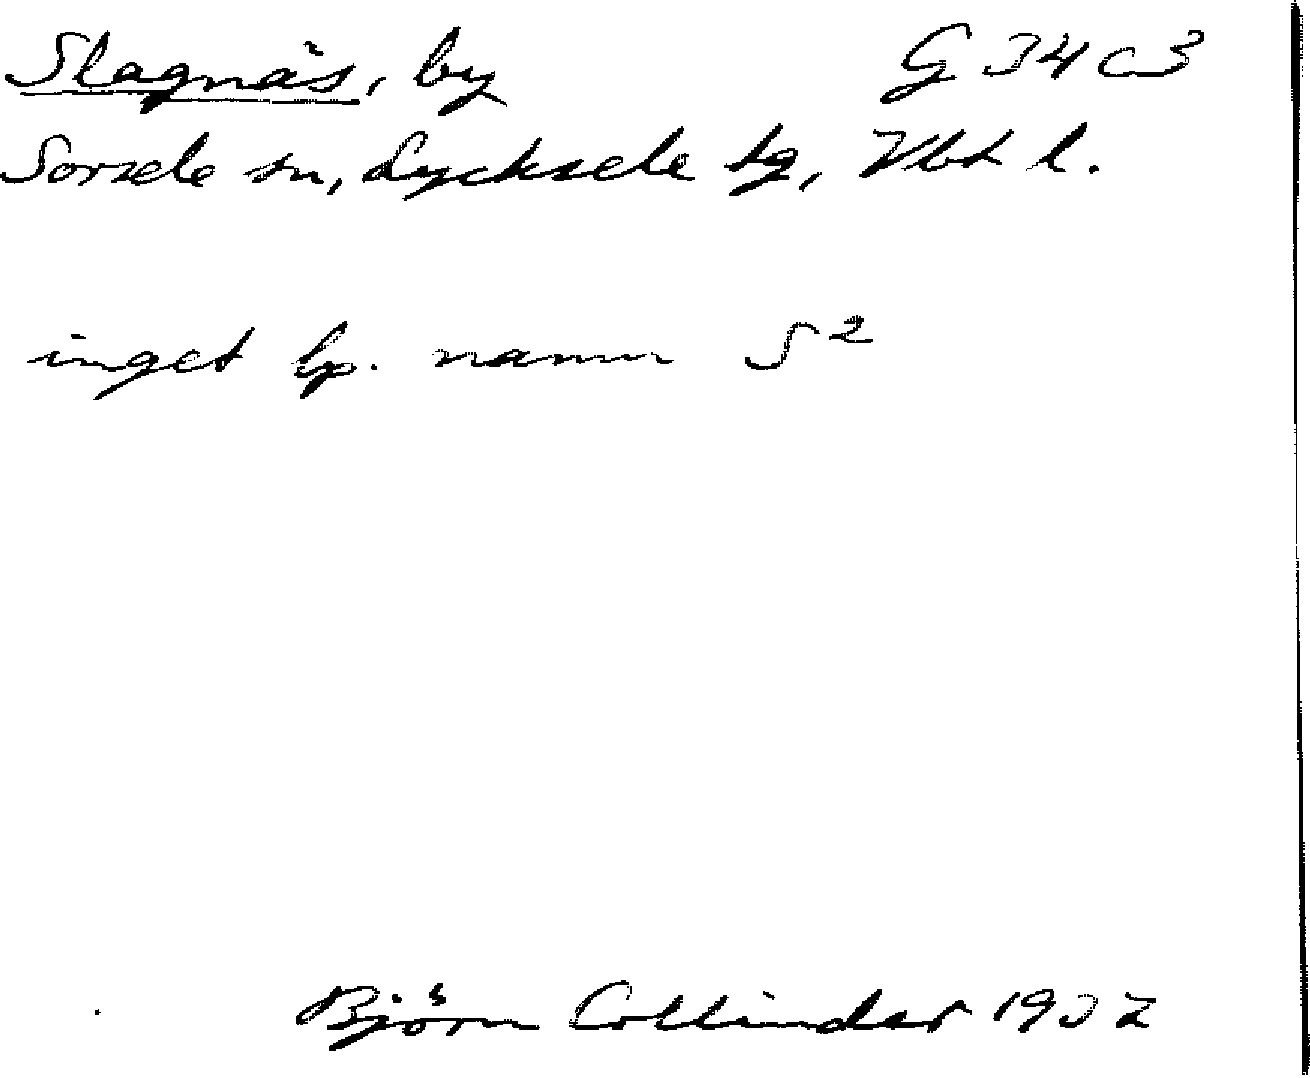 Slagnäs, by G 34 c 3
Sorsele sn, Lycksele tg, Vbt l.
inget lp. namn S²
Björn Collinder 1932